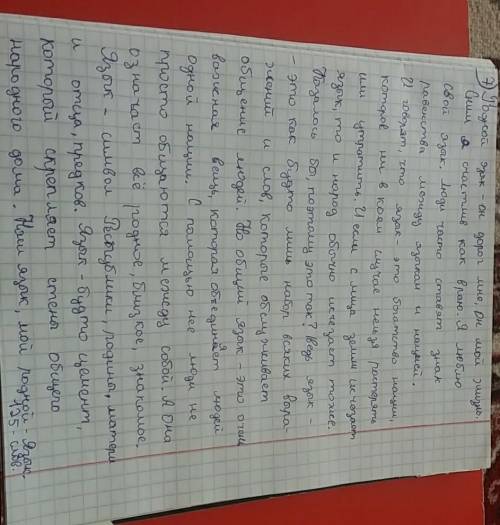 7) Родной язык - он дорог мне, он мой
Одним счастлив как владею. Я люблю
свой язык. Люди часто ставят знак
равенства между языком и нацией.
И говорят, что язык - это богатство нации,
которое ни в коем случае нельзя растерять
или утратить. И если с лица земли исчезает
язык, то и народ обычно исчезает тоже.
Казалось бы, почему это так? Ведь язык -
- это как будто лишь набор всяких выра-
жений и слов, которые обслуживает
общение людей. Но общий язык - это очень
важная вещь, которая объединяет людей
одной нации. С помощью нее люди не
просто общаются между собой. Она
означает всё родное, близкое, знакомое.
Язык - символ Республики, родины, матери
и отца, предков. Язык - будто цемент,
который скрепляет стены общего
народного дома. Наш язык, мой родной - язык
135 - слов.